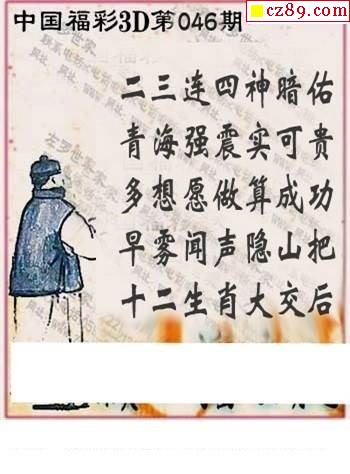 cz89.com
中国福彩3D第046期
二三连四神暗佑
青海强震实可贵
多想愿做算成功
早雾闻声隐山把
十二生肖大交后